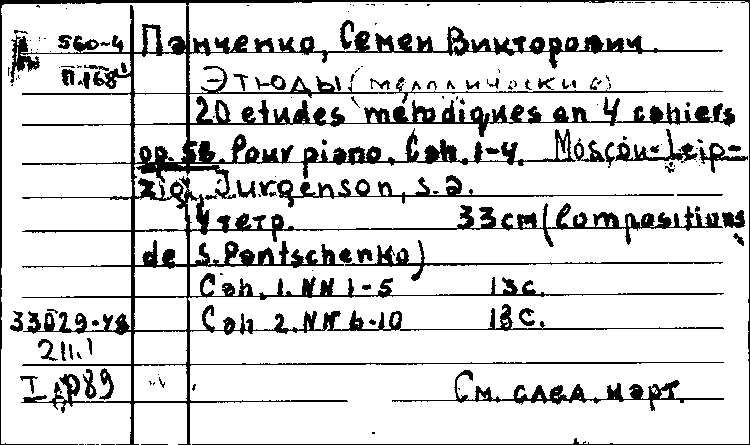 560-4 Панченко, Семен Викторович.
П.168
Этюды (мелодические)
20 etudes melodiques en 4 cahiers
op. 58. Pour piano. Cah. 1-4. Moscou-Leip-
zig, Jurgenson, s.a.
4 тетр. 33 cm (Compositions
de S. Pantschenko)
Cah. 1. NN 1-5 13 с.
33029-48 Cah 2. NN 6-10 13 с.
211.1
I др89 См. след. карт.